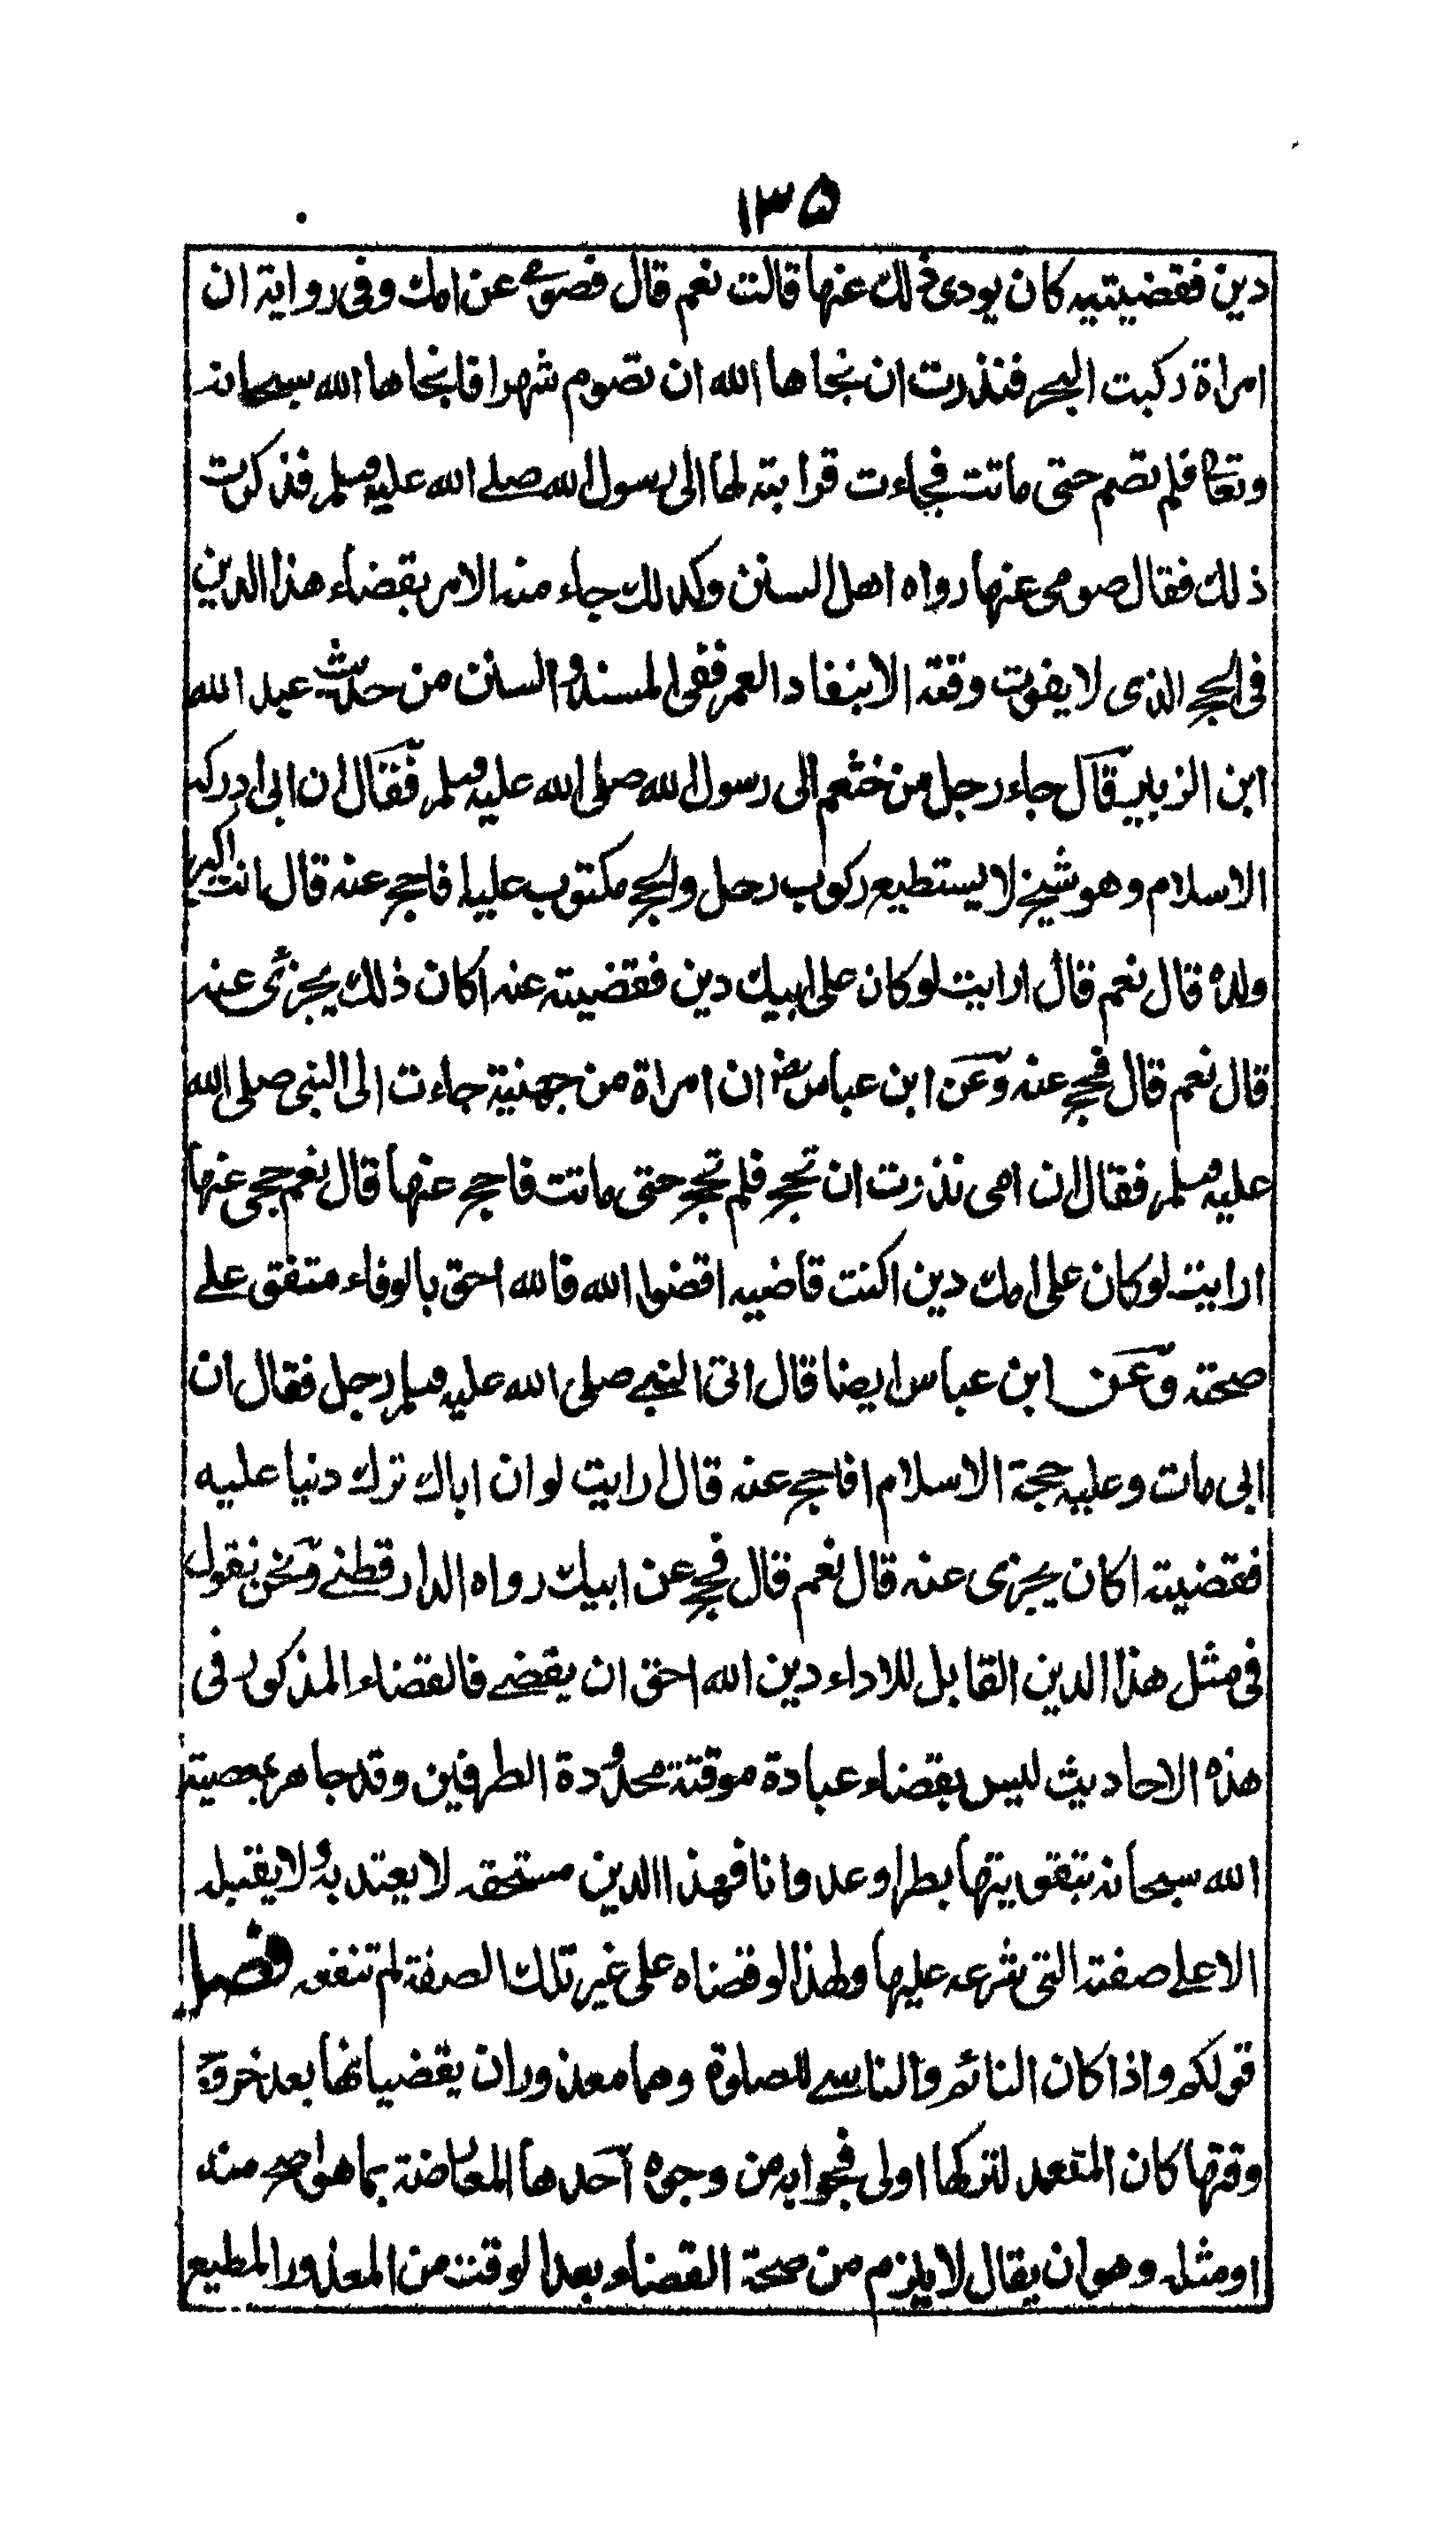 ١٣٥
دين فقضيتيه كان يودى ذلك عنها قالت نعم قال فصومى عن امك وفى رواية ان
امراة ركبت البحر فنذرت ان نجاها الله ان تصوم شهرا فانجاها الله سبحانه
وتعالى فلم تصم حتى ماتت فجاءت قرابته لها الى رسول الله صلے الله عليه وسلم فذكرت
ذلك فقال صومى عنها رواه اهل السنن وكذلك جاء منه الامر بقضاء هذا الدين
فى الحج الذى لا يفوت وقته الا بنفاد العمر ففى المسند والسنن من حديث عبد الله
ابن الزبير قال جاء رجل من خثعم الى رسول الله صلى الله عليه وسلم فقال ان ابى ادركه
الاسلام وهو شيخ لا يستطيع ركوب رحل والحج مكتوب عليه افاحج عنه قال انت اكبر
ولده قال نعم قال ارايت لو كان على ابيك دين فقضيته عنه اكان ذلك يجزئى عنه
قال نعم قال فحج عنه وعن ابن عباس رضـ ان امراة من جهنية جاءت الى النبى صلى الله
عليه وسلم فقال ان امى نذرت ان تحج فلم تحج حتى ماتت فاحج عنها قال نعم حجى عنها
ارايت لو كان على امك دين اكنت قاضيه اقضوا الله فالله احق بالوفاء متفق علے
صحته وعن ابن عباس ايضا قال اتى النبے صلى الله عليه وسلم رجل فقال ان
ابى مات وعليه حجة الاسلام افاحج عنه قال ارايت لو ان اباك ترك دنيا عليه
فقضيته اكان يجزى عنه قال نعم قال فحج عن ابيك رواه الدارقطنے ونحن نقول
فى مثل هذا الدين القابل للاداء دين الله احق ان يقضے فالقضاء المذكور فى
هذه الاحاديث ليس بقضاء عبادة موقتة محدودة الطرفين وقد جاهر بمعصية
الله سبحانه بتفويتها بطرا وعدوانا فهذا الدين مستحقه لا يعتد به ولا يقبله
الا علے صفته التى شرعه عليها ولهذا لو قضاه على غير تلك الصفة لم تنفعه فصل
قولكم واذا كان النائم والناسے للصلوة وهما معذوران يقضيانها بعد خروج
وقتها كان المتعمد لتركها اولى فجوابه من وجوه احدها المعارضة بما هو اصح منه
او مثله وهو ان يقال لا يلزم من صحة القضاء بعد الوقت من المعذور المطيع